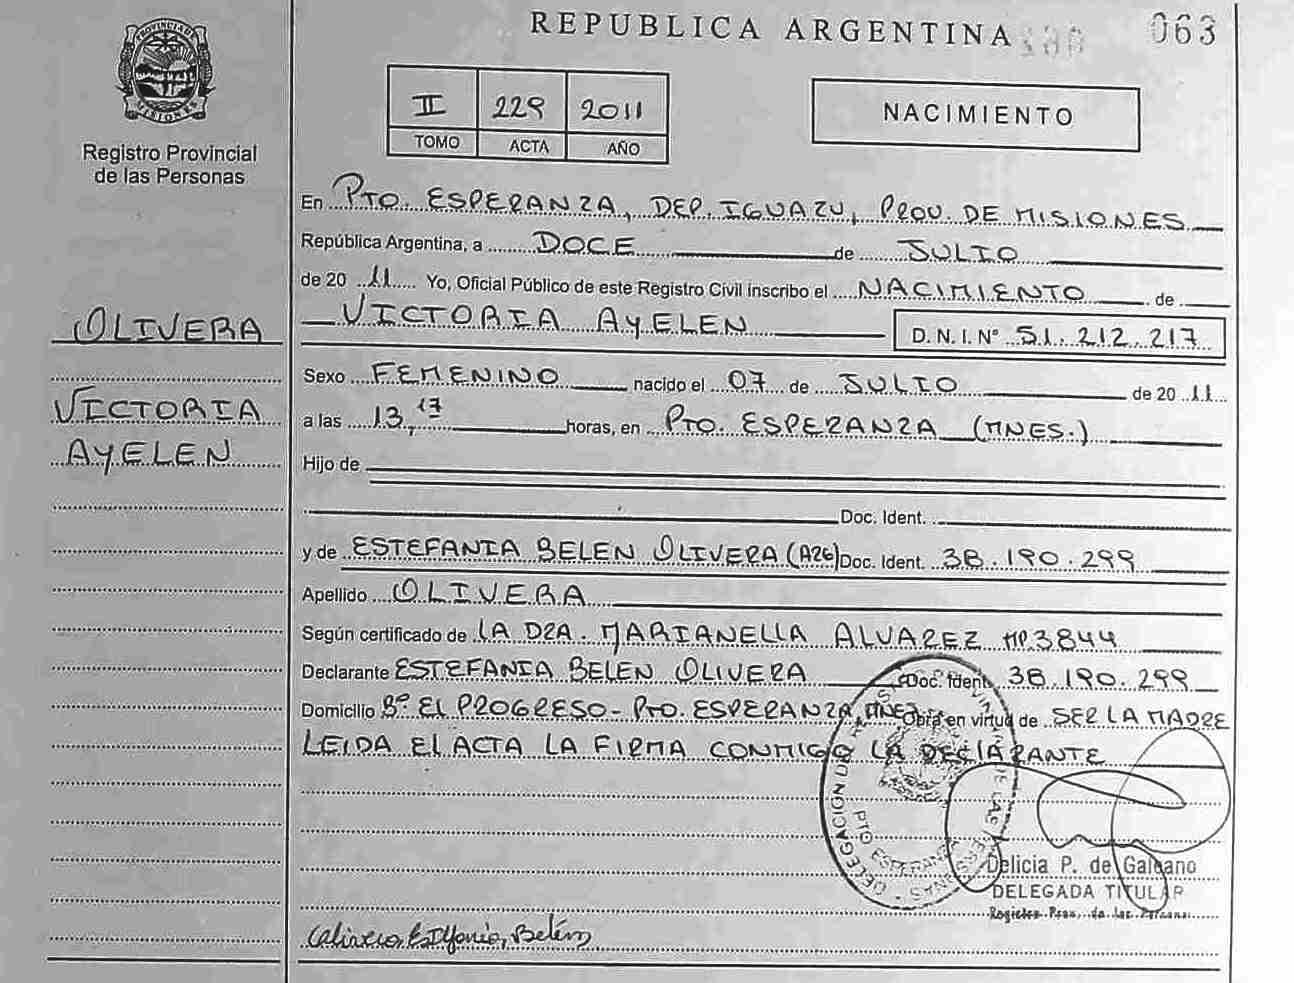 REPUBLICA ARGENTINA
063
PROVINCIA DE MISIONES
Registro Provincial
de las Personas
II 229 2011
TOMO ACTA AÑO
NACIMIENTO
En PTO. ESPERANZA, DEP. IGUAZU, PROV. DE MISIONES
República Argentina, a DOCE de JULIO
de 20 11 Yo, Oficial Público de este Registro Civil inscribo el NACIMIENTO de
VICTORIA AYELEN D. N. I. N° 51.212.217
OLIVERA
VICTORIA
AYELEN
Sexo FEMENINO nacido el 07 de JULIO de 20 11
a las 13,17 horas, en PTO. ESPERANZA (MNES.)
Hijo de
Doc. Ident.
y de ESTEFANIA BELEN OLIVERA (ARG) Doc. Ident. 38.190.299
Apellido OLIVERA
Según certificado de LA DRA. MARIANELLA ALVAREZ MP.3844
Declarante ESTEFANIA BELEN OLIVERA Doc. Ident. 38.190.299
Domicilio Bº EL PROGRESO - PTO. ESPERANZA MNES Obra en virtud de SER LA MADRE
LEIDA EL ACTA LA FIRMA CONMIGO LA DECLARANTE
DELEGACION DEL
PTO ESPERANZA
Delicia P. de Galeano
DELEGADA TITULAR
Registro Prov. de las Personas
Olivera, Estefania, Belén